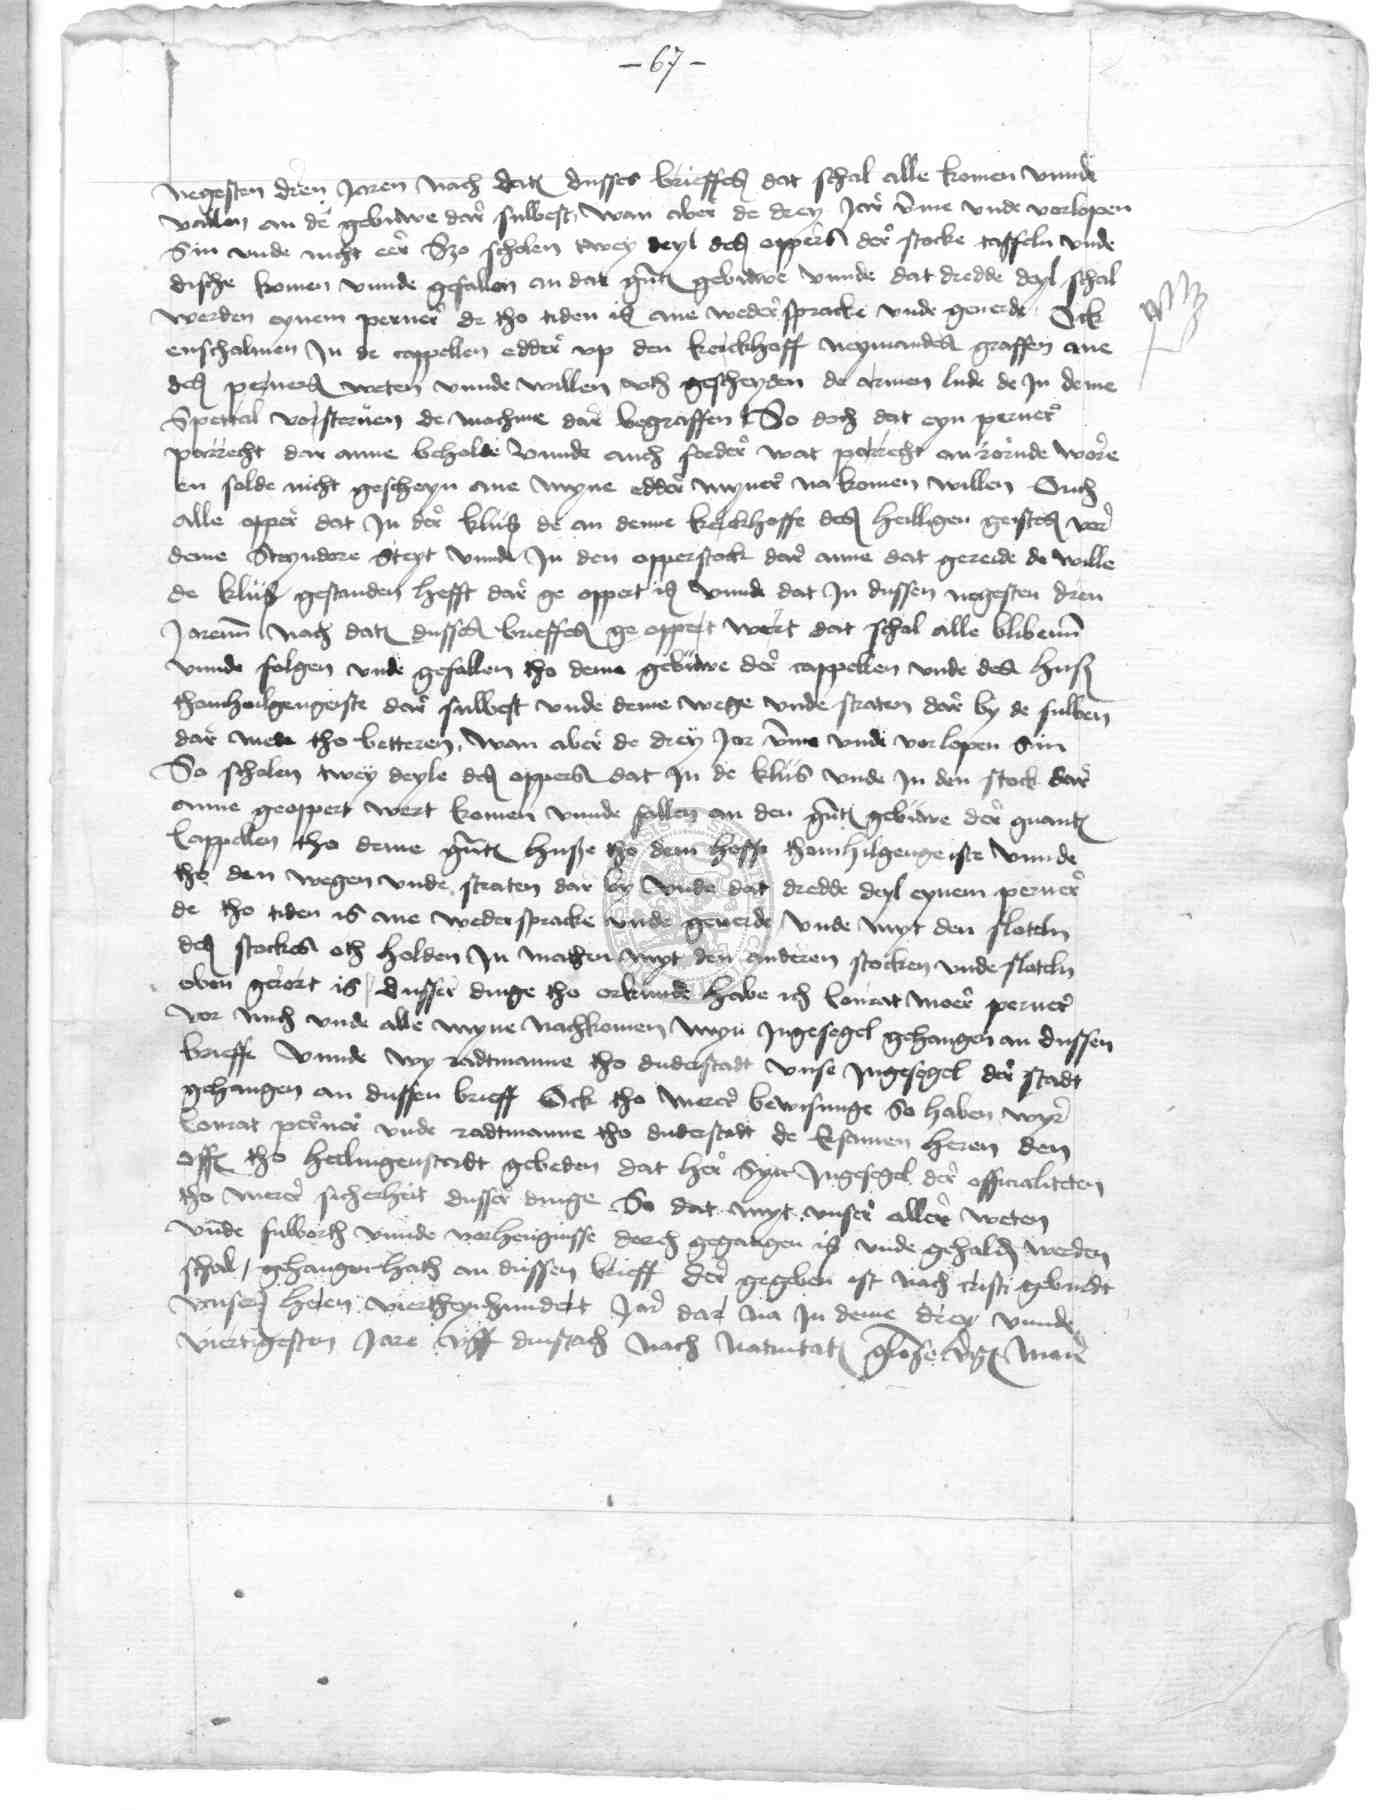 - 67 -
negesten dren Jaren nach dat dusses brieffes dat schal alle komen vnnde
vallen an de gebuwe dar sulbest, wan aber de drey Jar vmme vnde vorlopen
Sin vnde nicht eer Szo scholen twey deyl des oppers der stocke taffeln vnde
dische komen vnnde gefallen an dat gnt gebuwe vnnde dat dredde deyl schal
werden eynem perner de tho tiden is ane wedersprache vnde geuerde Ock
enschalmen In de cappellen edder vp den kerckhoff neymandes graffen ane
des perners weten vnnde willen vth gescheyden de armen lude de In deme
Spettal vorsteruen de mochme dar begraffen So doch dat eyn perner
parrecht dar anne beholde vnnde auch forder wat parrecht an rornde wore
en solde nicht gescheyn ane myne edder myner na komen willen Ouch
alle opper dat In der klus de an deme kerckhoffe des heilligen geistes vor
deme Steyndore Steyt vnnde In den opperstock dar anne dat gereide de wille
de klus gestanden hefft dar ge oppert is vnnde dat In dussen negesten dren
Jarenn nach dat dusses brieffes ge oppert wert dat schal alle blibenn
vnnde folgen vnde gefallen tho deme gebuwe der cappellen vnde des huss
thomheilgengeiste dar sulbest vnde deme wege vnde straten dar by de sulben
dar mede tho betteren, wan aber de drey Jar vmme vnde vorlopen sin
So scholen twey deyle des oppers dat In de klus vnde In den stock dar
anne geoppert wert komen vnnde fallen an den gnt gebuwe der gnant
Cappellen tho deme gnt husse tho dem hoffe thomhilgengeiste vnnde
tho den wegen vnde straten dar by vnde dat dredde deyl eynem perner
de tho tiden is ane wedersprache vnde geuerde vnde myt den sloteln
des stockes oth holden In maten myt den anderen stocken vnde sloteln
oben gerort is / dusser dinge tho orkunde habe ich Conrat moer perner
vor mich vnde alle myne nachkomen myn Ingesegel gehangen an dussen
brieff vnnde wy radtmanne tho duderstadt vnse Ingesegel der stadt
gehangen an dussen brieff Ock tho merer bewisunge So haben wyr
Conrat perner vnde radtmanne tho duderstadt de Ersamen heren den
offi tho heilingenstadt gebeden dat her Syn Ingesegel der officialiteten
tho merer sicherheit dusser dinge So dat myt vnser aller weten
vnde fulborth vnnde vorhengnisse dorch gegangen is vnde gehald werden
schal / gehangen hath an dussen brieff der gegeben ist nach cristi geburdt
vnsers heren viertheynhundert Jar dar na In deme drey vnnde
viertigesten Jare vff dinstach nach natiuitat glose virg marie